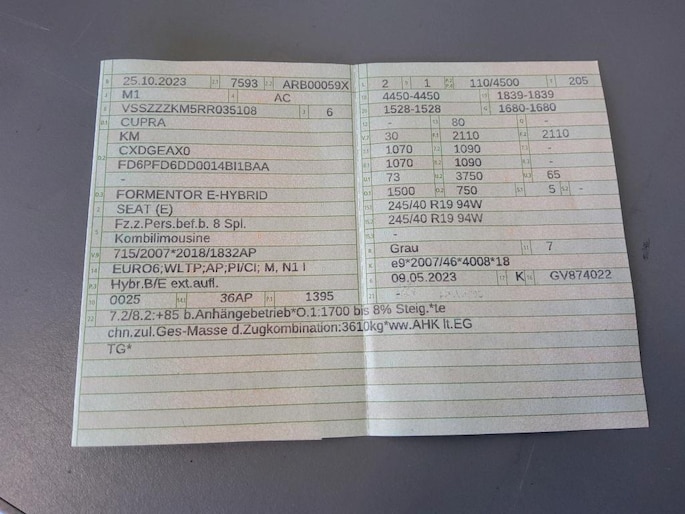 25.10.2023 7593 ARB00059X
M1 AC
VSSZZZKM5RR035108 6
CUPRA
KM
CXDGEAX0
FD6PFD6DD0014BI1BAA
-
FORMENTOR E-HYBRID
SEAT (E)
Fz.z.Pers.bef.b. 8 Spl.
Kombilimousine
715/2007*2018/1832AP
EURO6;WLTP;AP;PI/CI; M, N1 I
Hybr.B/E ext.aufl.
0025 36AP 1395
7.2/8.2:+85 b.Anhängebetrieb*O.1:1700 bis 8% Steig.*te
chn.zul.Ges-Masse d.Zugkombination:3610kg*ww.AHK lt.EG
TG*
2 1 110/4500 205
4450-4450 1839-1839
1528-1528 1680-1680
- 80 -
30 2110 2110
1070 1090 -
1070 1090 -
73 3750 65
1500 750 5 -
245/40 R19 94W
245/40 R19 94W
-
Grau 7
e9*2007/46*4008*18
09.05.2023 K GV874022
-